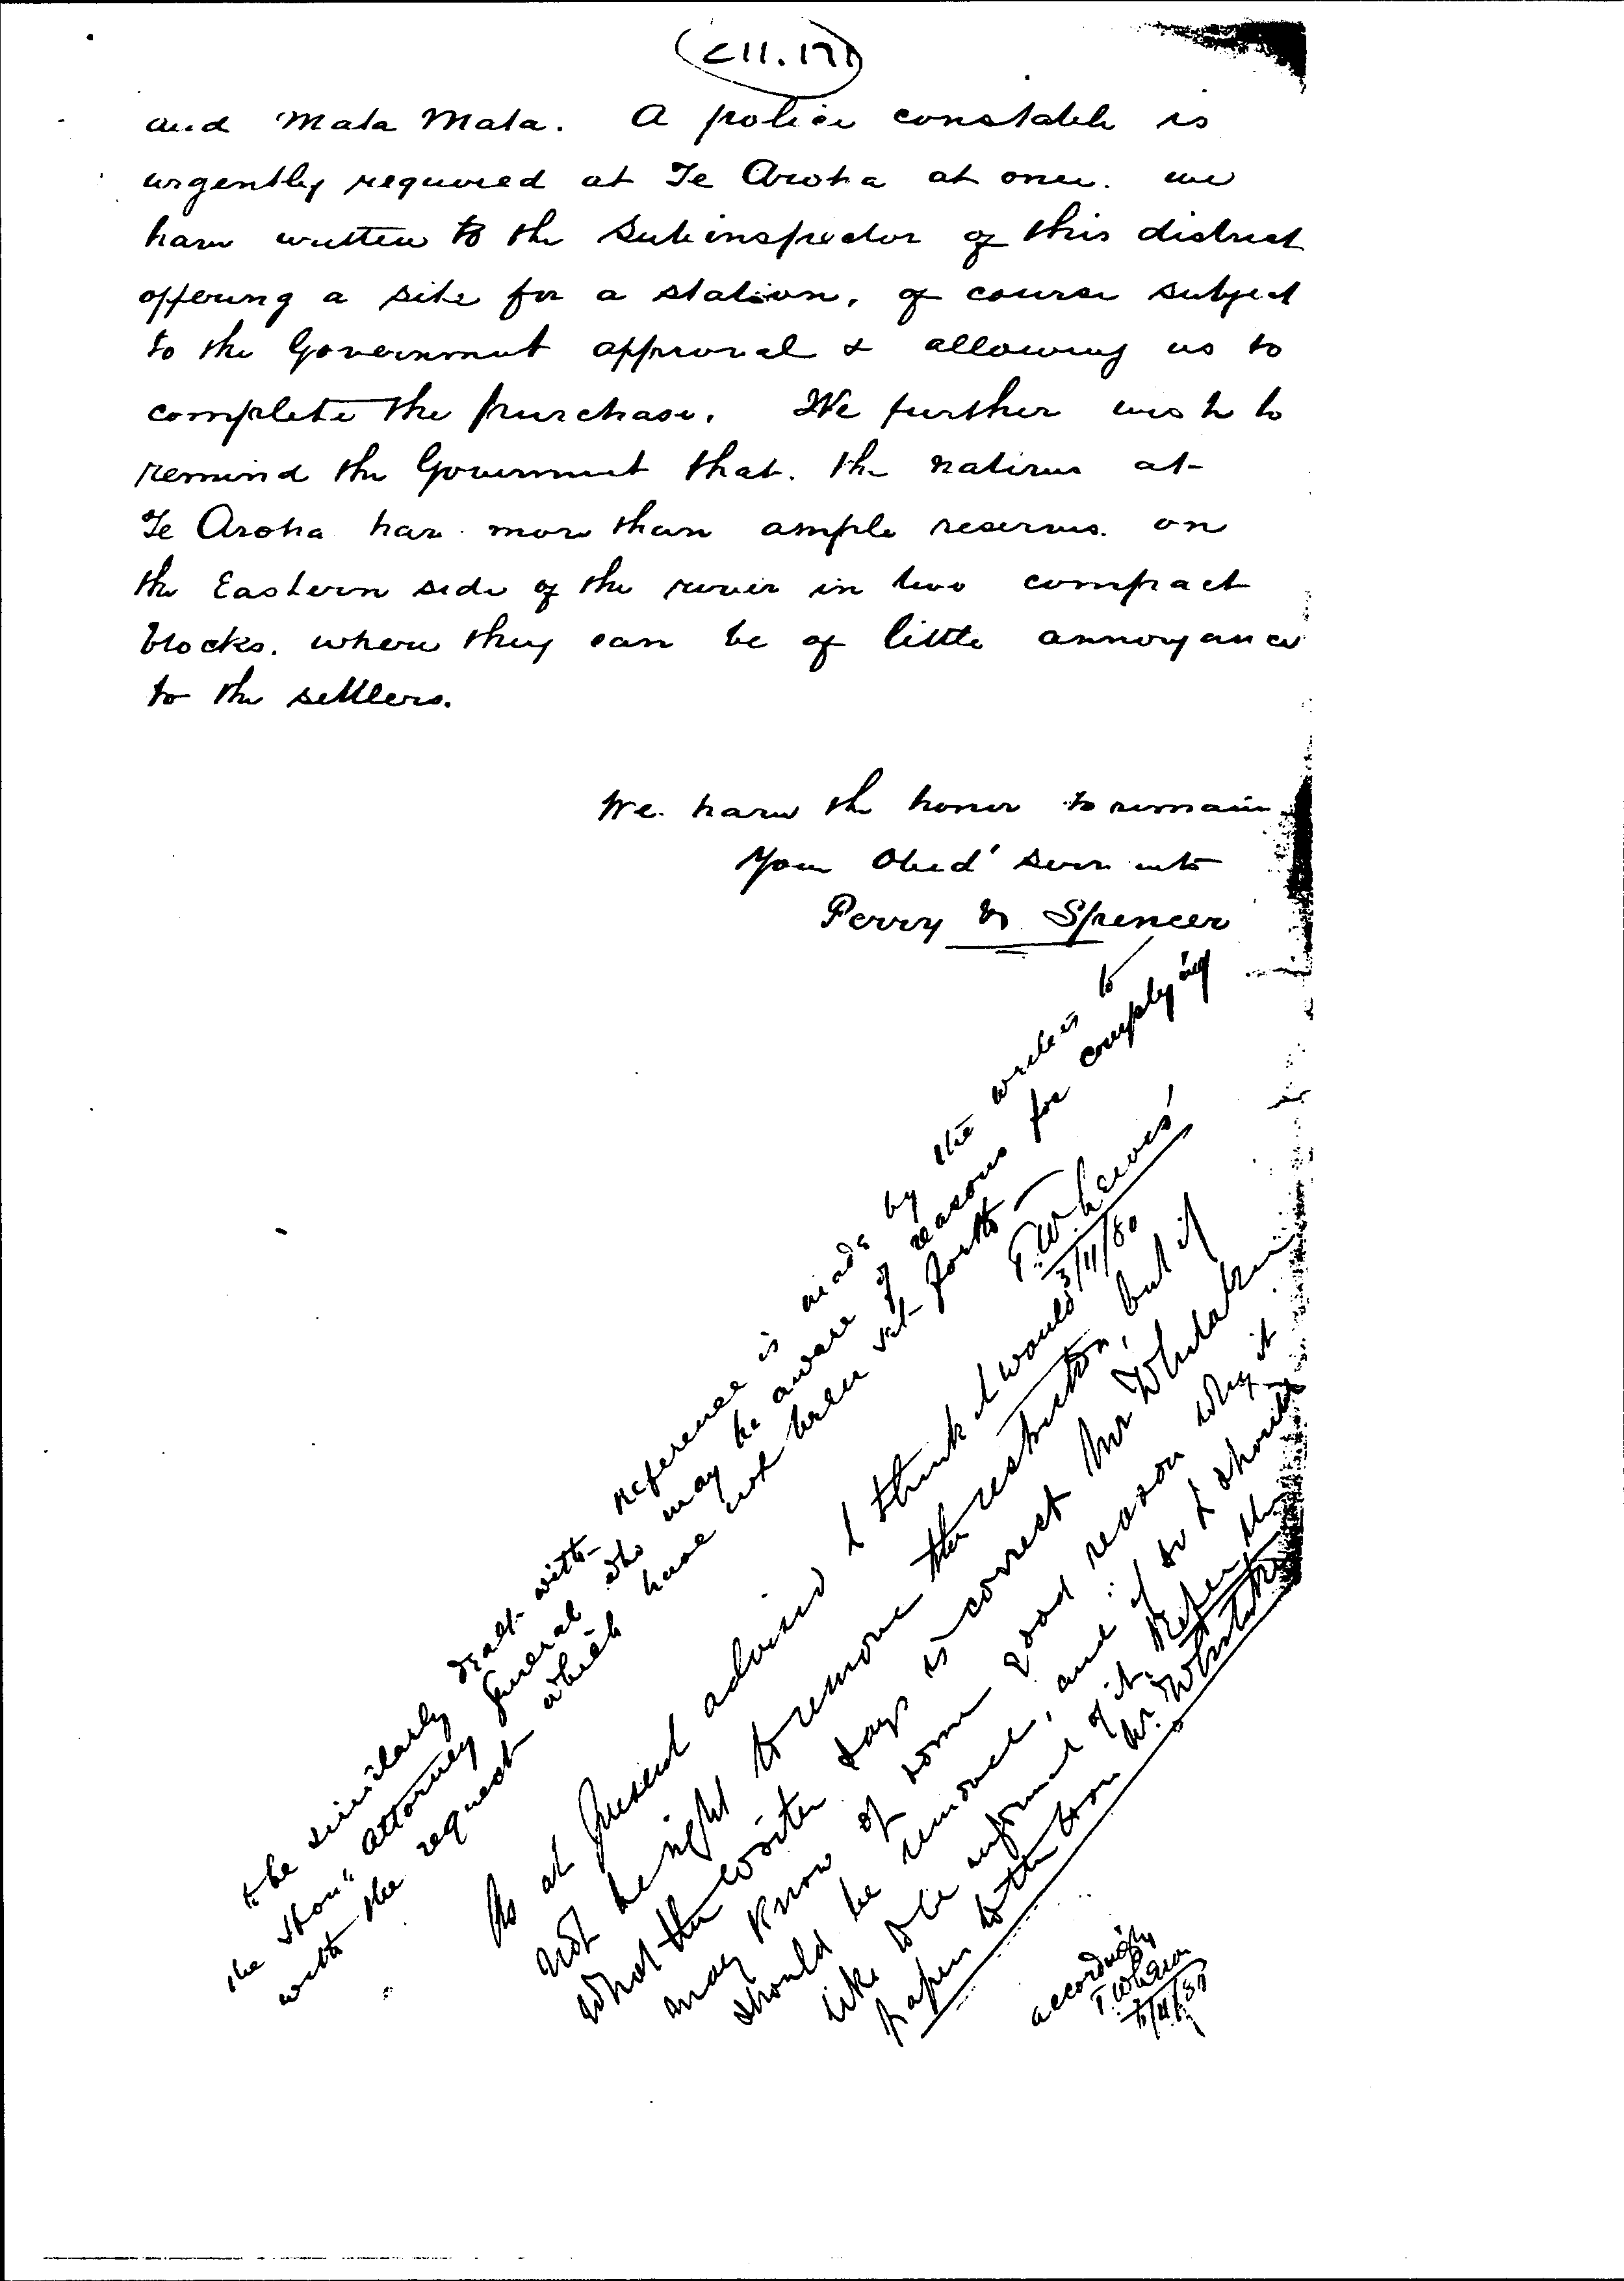 C11.171
and Mata Mata. A police constable is
urgently required at Te Aroha at once. We
have written to the Sub inspector of this district
offering a site for a station, of course subject
to the Government approval & allowing us to
complete the purchase. We further wish to
remind the Government that the natives at
Te Aroha have more than ample reserves on
the Eastern side of the river in two compact
blocks. where they can be of little annoyance
to the settlers.
We have the honor to remain
Your Obed' servants
Perry & Spencer
to be similarly dealt with - reference is made by the writers to
the Hon. Attorney General who may be aware of reasons for complying
with the request which have not been set forth -
T.W. Lewis
3/11/80
As at present advised I think it would
not be right to remove the restriction, but if
what the writer says is correct Mr Whitaker
may know of some good reason why it
should be removed, and if so I should
like to be informed of it. Refer the
paper to the Hon Mr. Whitaker
accordingly
T W Lewis
/11/80